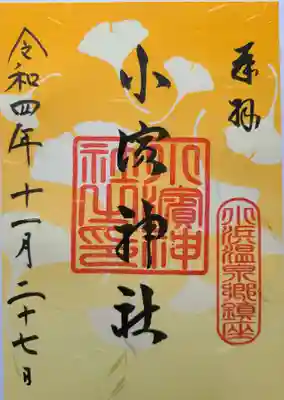 奉拝
小浜温泉郷鎮座
小濵神社
小濱神社之印
令和四年十一月二十七日